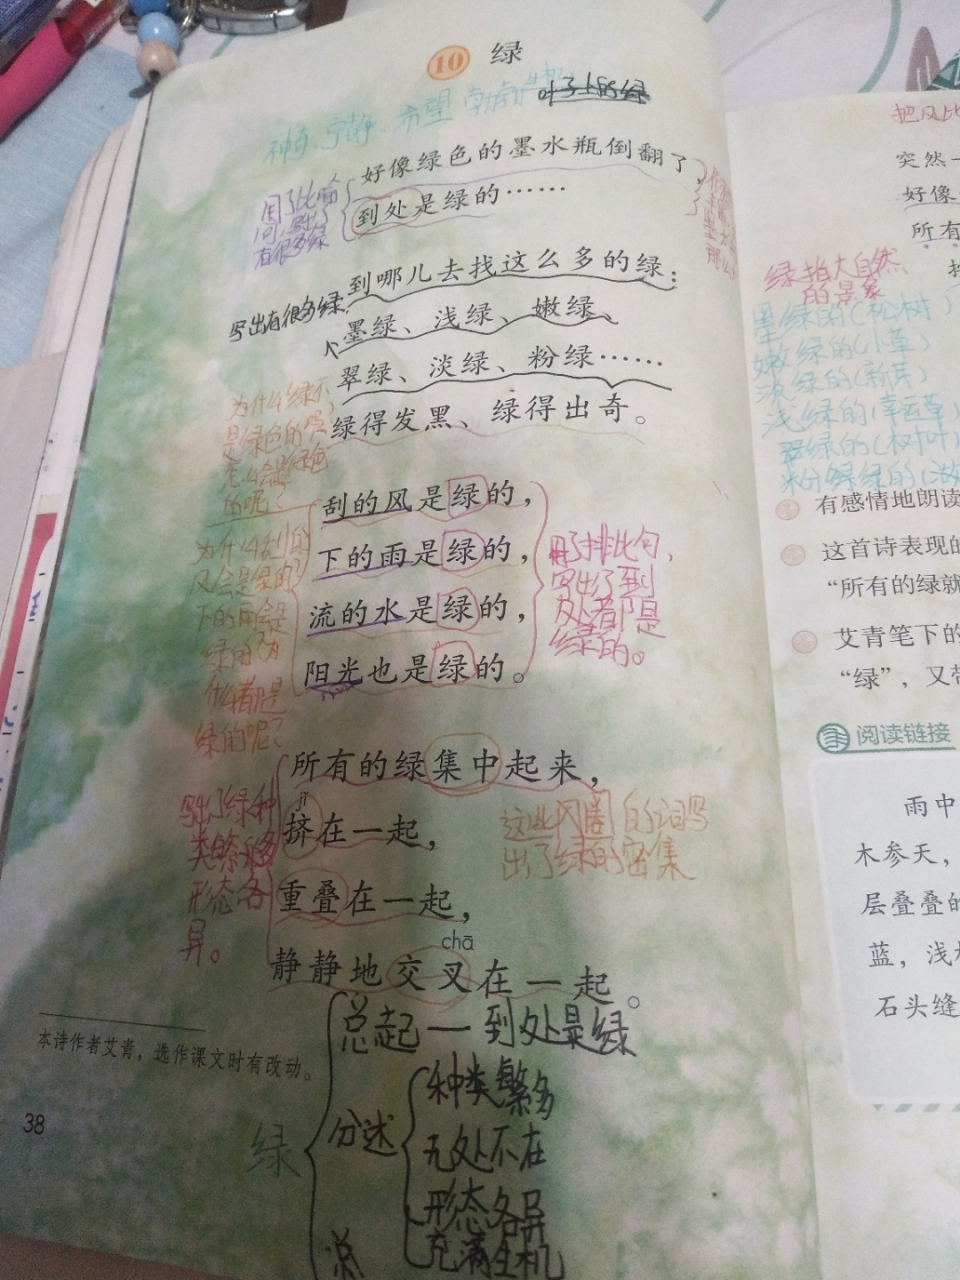 10 绿
叶子上的绿
神奇、宁静、希望
好像绿色的墨水瓶倒翻了，
到处是绿的……
用了比喻
有很多绿
到哪儿去找这么多的绿：
写出有很多绿，
墨绿、浅绿、嫩绿、
翠绿、淡绿、粉绿……
绿得发黑、绿得出奇。
为什么绿不
是绿色的
的呢？
刮的风是绿的，
下的雨是绿的，
流的水是绿的，
阳光也是绿的。
为什么刮的
风会是绿的？
下的雨会是
绿的？为
什么都是
绿的呢？
用了排比句，
写出了到
处都是
绿的。
所有的绿集中起来，
jǐ
挤在一起，
重叠在一起，
chā
静静地交叉在一起。
写出了绿种
类繁多
形态各
异。
这些闪圈的词写
出了绿的密集
总起一到处是绿
绿
分述
种类繁多
无处不在
形态各异
充满生机
总
本诗作者艾青，选作课文时有改动。
38
把风比
突然一
好像
所有
绿指大自然
的景象
墨绿的(松树)
嫩绿的(小草)
淡绿的(新芽)
浅绿的(草)
翠绿的(树叶)
粉绿绿的(
有感情地朗读
这首诗表现的
“所有的绿就
艾青笔下的
“绿”，又带
阅读链接
雨中
木参天，
层叠叠的
蓝，浅
石头缝